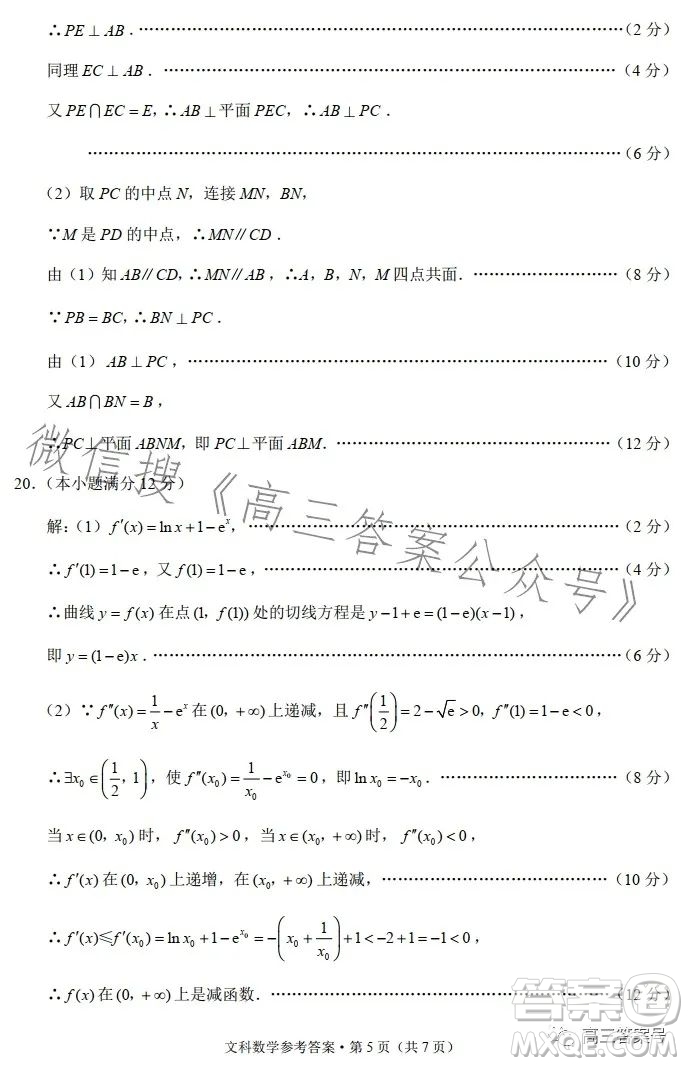 ∴PE⊥AB．……………………………………（2 分）
同理 EC⊥AB．……………………………………（4 分）
又 PE⋂EC=E，∴AB⊥平面 PEC，∴AB⊥PC．
……………………………………（6 分）
（2）取 PC 的中点 N，连接 MN，BN，
∵M 是 PD 的中点，∴MN∥CD．
由（1）知 AB∥CD，∴MN∥AB，∴A，B，N，M 四点共面．……………………（8 分）
∵PB=BC，∴BN⊥PC．
由（1）AB⊥PC，……………………………………（10 分）
又 AB⋂BN=B，
∴PC⊥平面 ABNM，即 PC⊥平面 ABM．……………………………………（12 分）
微信搜《高三答案公众号》
20．（本小题满分 12 分）
解：（1）f′(x)=ln x+1−e^x，……………………………………（2 分）
∴f′(1)=1−e，又 f(1)=1−e，……………………………………（4 分）
∴曲线 y=f(x) 在点 (1，f(1)) 处的切线方程是 y−1+e=(1−e)(x−1)，
即 y=(1−e)x．……………………………………（6 分）
（2）∵f″(x)=1/x−e^x 在 (0，+∞) 上递减，且 f″(1/2)=2−√e>0，f″(1)=1−e<0，
∴∃x₀∈(1/2，1)，使 f″(x₀)=1/x₀−e^(x₀)=0，即 ln x₀=−x₀．……………………（8 分）
当 x∈(0，x₀) 时，f″(x)>0，当 x∈(x₀，+∞) 时，f″(x)<0，
∴f′(x) 在 (0，x₀) 上递增，在 (x₀，+∞) 上递减，……………………………………（10 分）
∴f′(x)≤f′(x₀)=ln x₀+1−e^(x₀)=−(x₀+1/x₀)+1<−2+1=−1<0，
∴f(x) 在 (0，+∞) 上是减函数．……………………………………（12 分）
高三答案号
文科数学参考答案·第 5 页（共 7 页）
答案圈
MXQE.COM